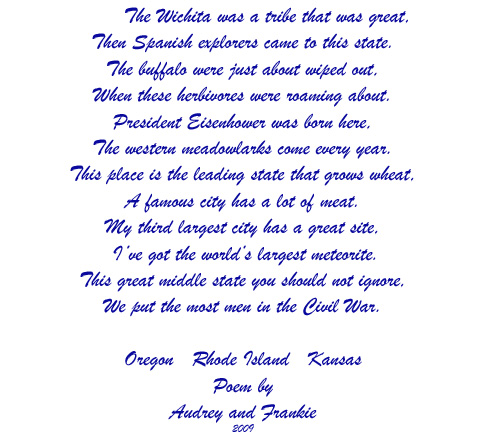 The Wichita was a tribe that was great,
Then Spanish explorers came to this state.
The buffalo were just about wiped out,
When these herbivores were roaming about.
President Eisenhower was born here,
The western meadowlarks come every year.
This place is the leading state that grows wheat,
A famous city has a lot of meat.
My third largest city has a great site,
I've got the world's largest meteorite.
This great middle state you should not ignore,
We put the most men in the Civil War.
Oregon Rhode Island Kansas
Poem by
Audrey and Frankie
2009